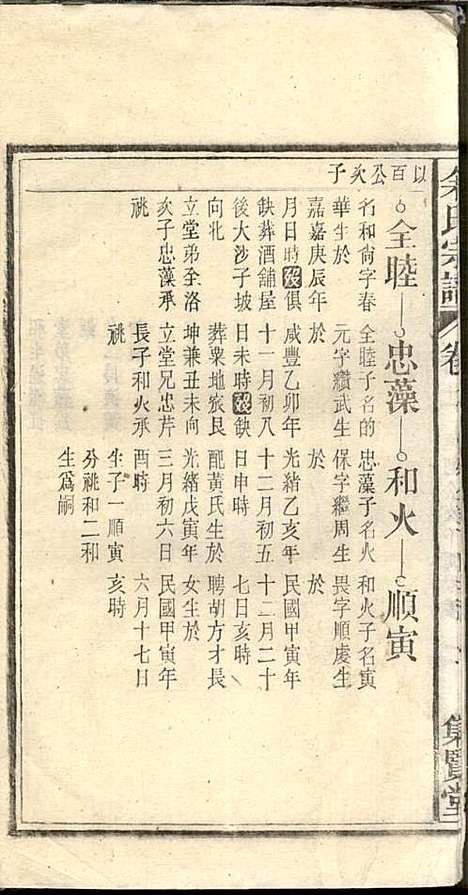 氏宗譜 卷
堂
以百公次子
全睦 忠藻 和火 順寅
名和尙字春
華生於
嘉嘉庚辰年
月日時歿俱
缺葬酒舖屋
後大沙子坡
向北
立堂弟全洛
次子忠藻承
祧
全睦子名的
元字纘武生
於
咸豐乙卯年
十一月初八
日未時歿缺
葬粟地嵗艮
坤兼丑未向
立堂兄忠芹
長子和火承
祧
忠藻子名火
保字繼周生
於
光緒乙亥年
十二月初五
日申時
配黃氏生於
光緒戊寅年
三月初六日
酉時
生子一順寅
分祧和二和
生爲嗣
和火子名寅
畏字順慶生
於
民國甲寅年
十二月二十
七日亥時
聘胡方才長
女生於
民國甲寅年
六月十七日
亥時